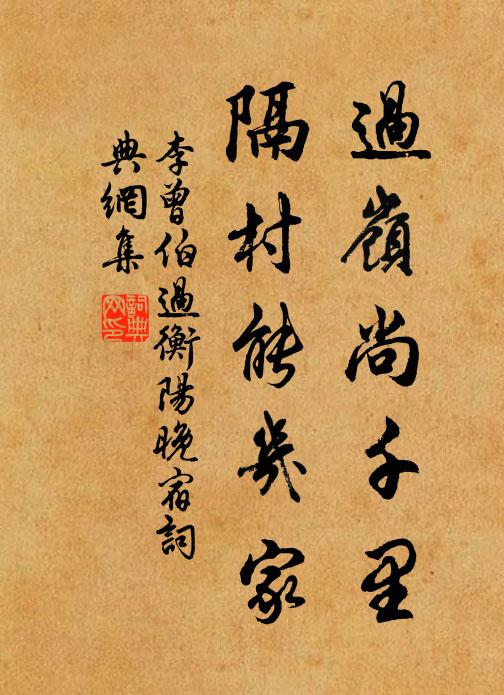 過嶺尚千里
隔村能幾家
李曾伯過衡陽晚宿詞
典網集
詞典
网印